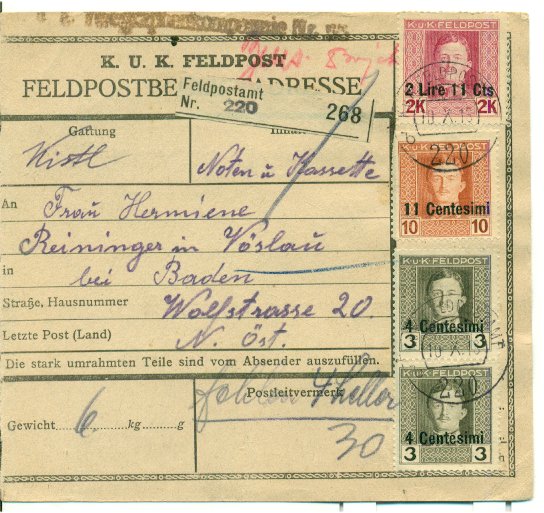 K. U. K. FELDPOST
FELDPOSTBE ADRESSE
Feldpostamt
Nr. 220
268
Gattung
Kistl
Noten u Kassette
An
Frau Hermiene
Reininger in Vöslau
in
bei Baden
Straße, Hausnummer
Wolfstrasse 20.
Letzte Post (Land)
N. Öst.
Die stark umrahmten Teile sind vom Absender auszufüllen.
Gewicht 6 kg g
Postleitvermerk
fehlen 4 heller
30
K.u.K. FELDPOST
2 Lire 11 Cts
2K 2K
220
K.u.K. FELDPOST
11 Centesimi
10 10
K.u.K. FELDPOST
4 Centesimi
3 3
220
K.u.K. FELDPOST
4 Centesimi
3 3